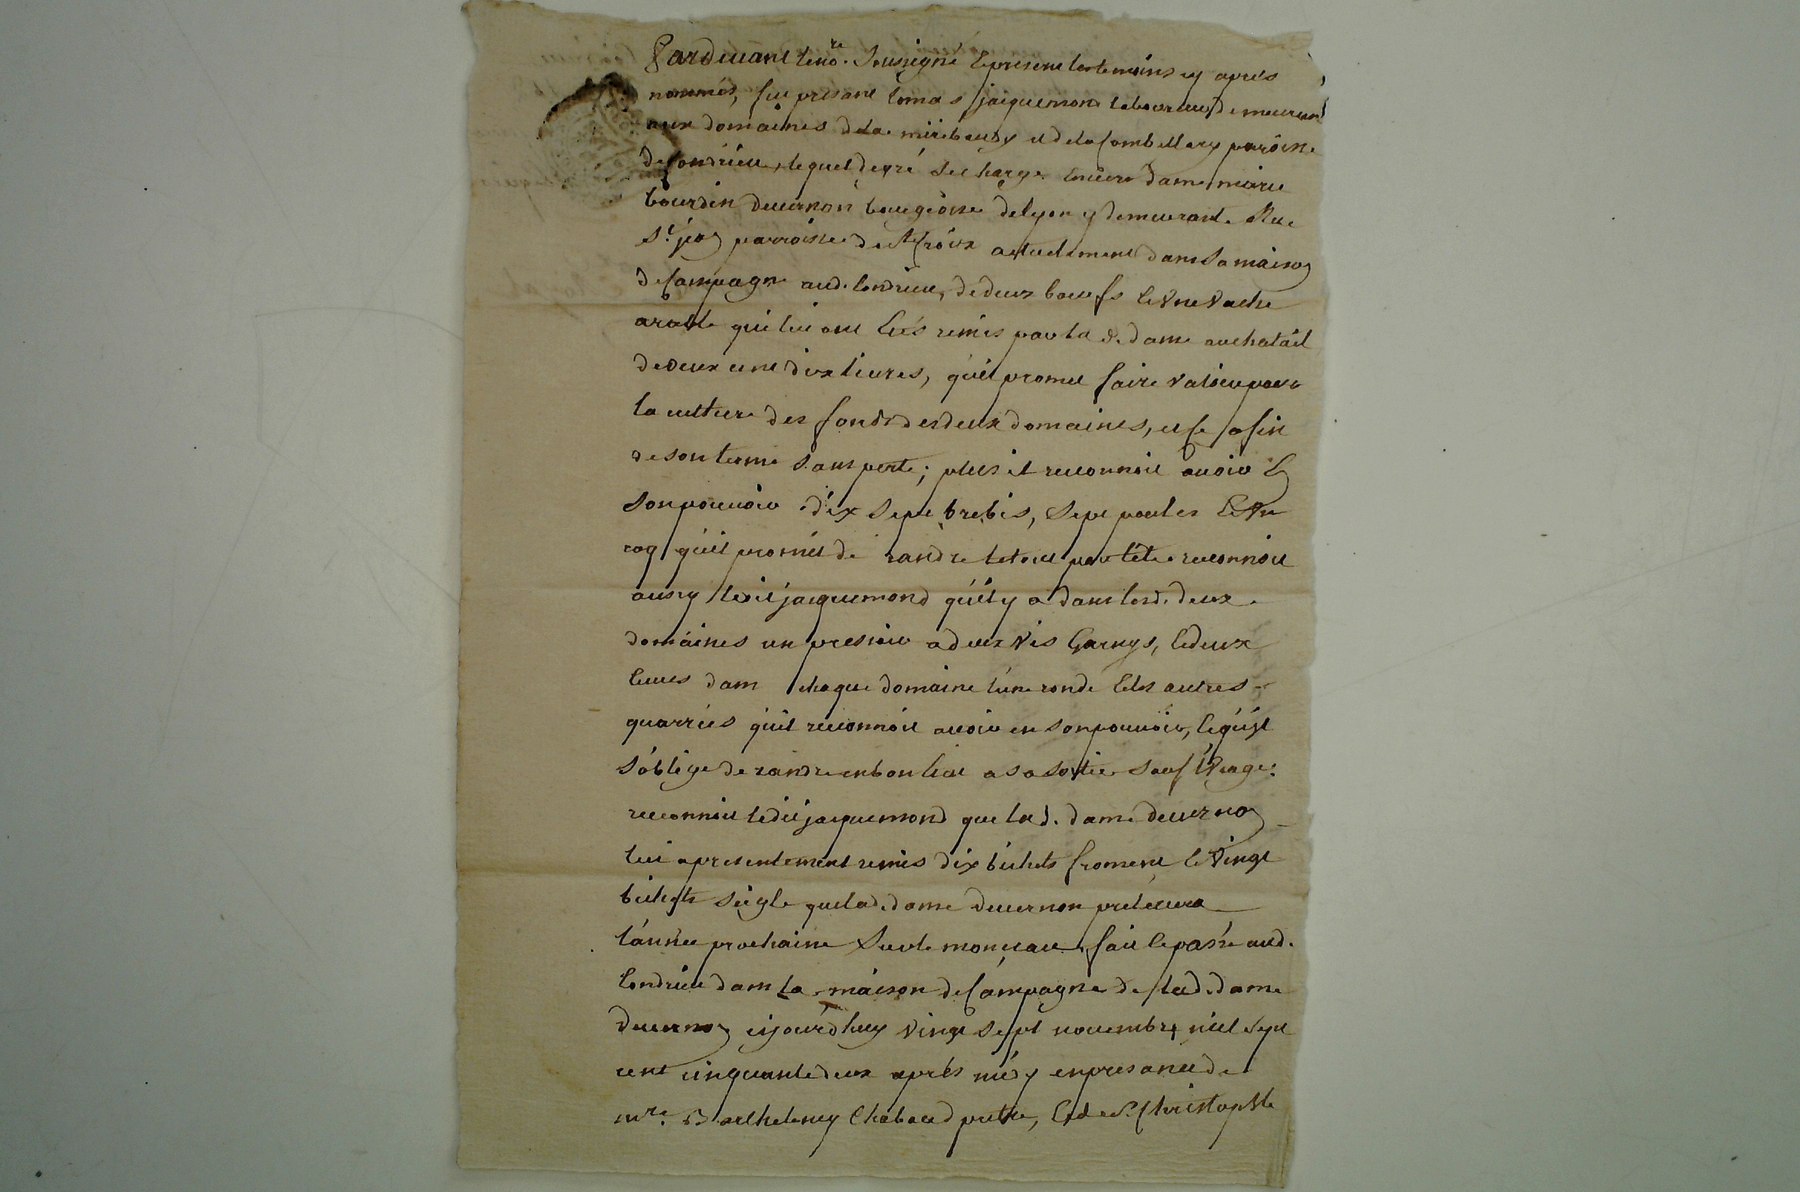 Pardevant le no.re soussigné Et present les temoins cy apres
nommés, fut present Tomas jacquemond laboureur demeurant
aux domaines de la miribaudy et de la Combellary paroisse
de Condrieu, lequel de gré se charge Envers dame marie
bourdin devernon bourgeoise de lyon y demeurant Rue
St. jean parroisse de Ste Croix actuelement dans sa maison
de Campagne aud. Condrieu, de deux boeufs Et Une Vache
arable qui lui ont Etés remis par la d. dame au chatail
de deux cent dix livres, qu'il promet faire Valoir pour
la culture des fonds des deux domaines, et ce a fin
de son terme sans perte; plus il reconnoit avoir En
son pouvoir dix sept brebis, sept poules Et Un
coq qu'il promet de randre le tout par tête reconnoit
aussy ledit jacquemond qu'il y a dans lesd. deux
domaines un pressoir a deux Vis Garnys, Et deux
Cuves dans chaque domaine l'une ronde Et les autres
quarrées qu'il reconnoit avoir en son pouvoir, Et qu'il
s'oblige de randre en bon Etat a sa sortie sauf l'Usage.
reconnoit ledit jacquemond que lad. dame devernon
lui a presentement remis dix bichets froment Et Vingt
bichets seigle que lad. dame devernon prelevera
l'année prochaine Sur le monceau, fait Et passé aud.
Condrieu dans la maison de Campagne de lad. dame
devernon cejourd'huy Vingt sept novembre mil sept
cent cinquante deux après midy en presance de
mre. Barthelemy Chaboud pretre, Et de Sr. Christophle